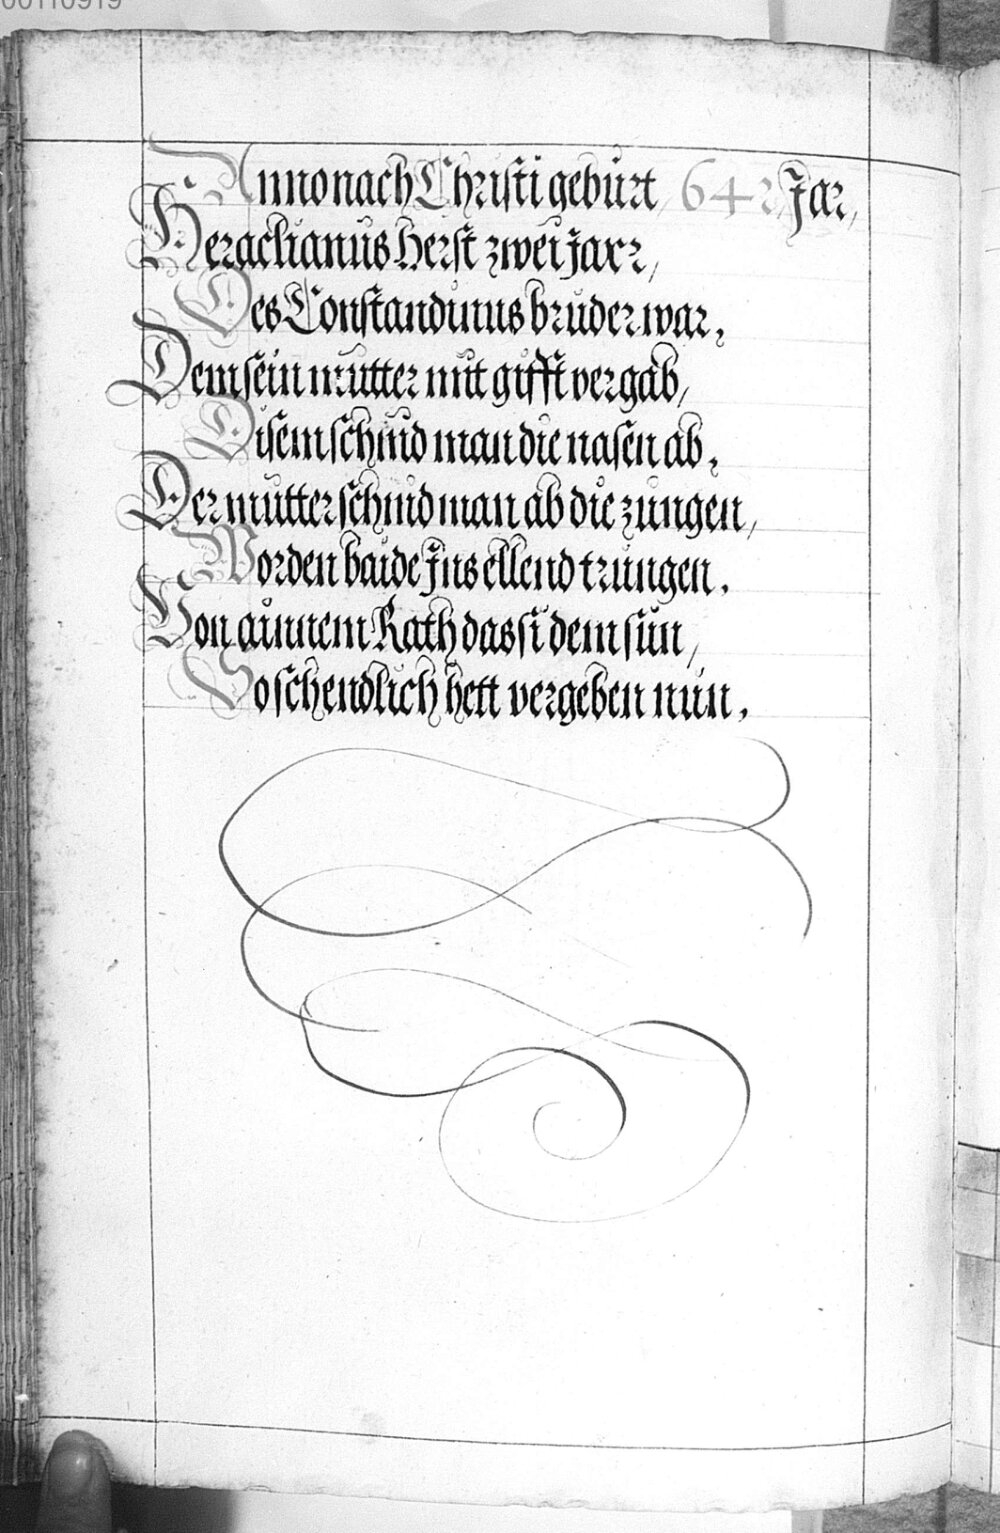 00110919
Anno nach Christi gebürt, 642 Jar,
Heraclianus herst zwei jarr,
Des Constandinus brüder war,
Dem sein mütter mit gifft vergab,
Disem schnid man die nasen ab,
Der mütter schnid man ab die züngen,
Worden baide Ins ellend trüngen.
Von ainnem Rath das si dem sün,
So schendlich hett vergeben nün.